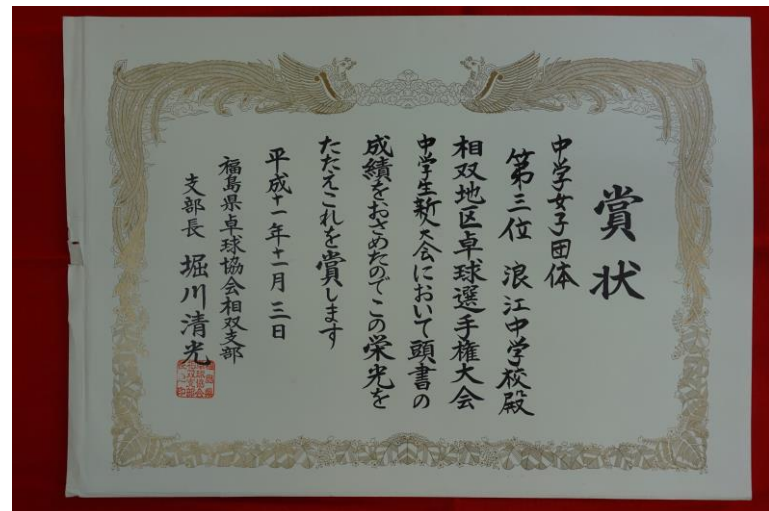 賞状
中学女子団体
第三位 浪江中学校殿
相双地区卓球選手権大会
中学生新人大会において頭書の
成績をおさめたのでこの栄光を
たたえこれを賞します
平成十一年十一月三日
福島県卓球協会相双支部
支部長 堀川清光